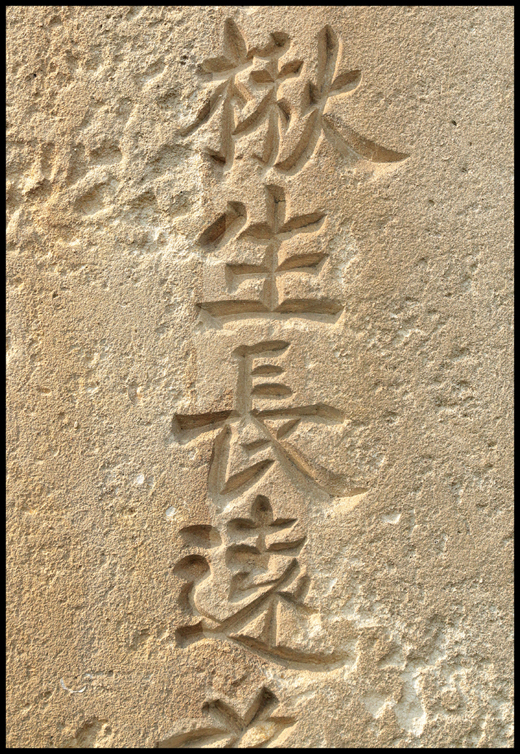 楸生長遠